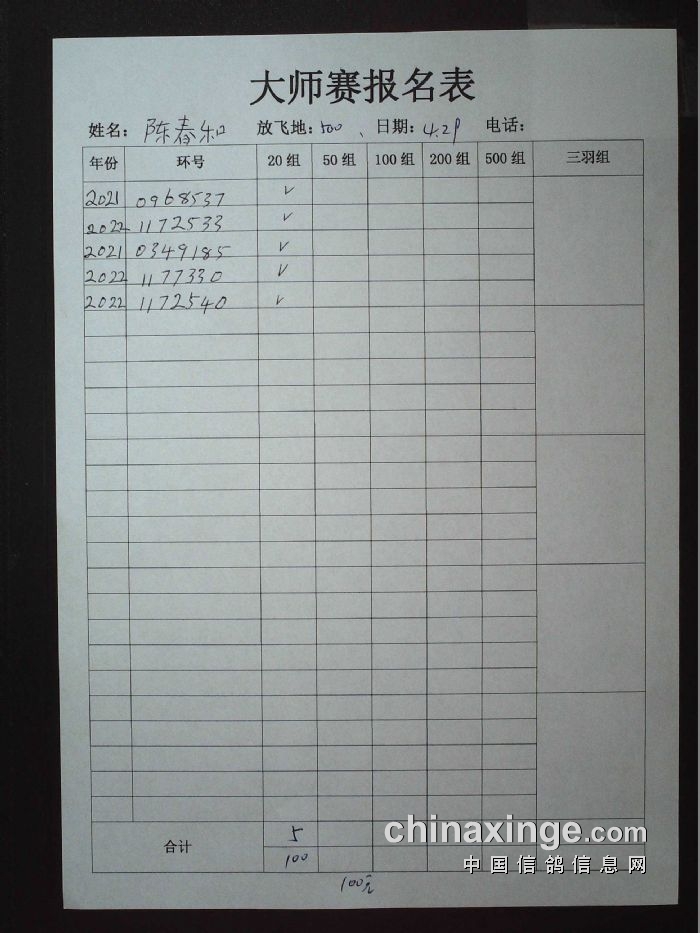 大师赛报名表
姓名: 陈春和 放飞地: 500 、日期: 4.29 电话:
年份 环号 20 组 50 组 100 组 200 组 500 组 三羽组
2021 0968537 ✓
2022 1172533 ✓
2021 0349185 ✓
2022 1177330 ✓
2022 1172540 ✓
合计 5
100
100元
chinaxinge.com
中国信鸽信息网